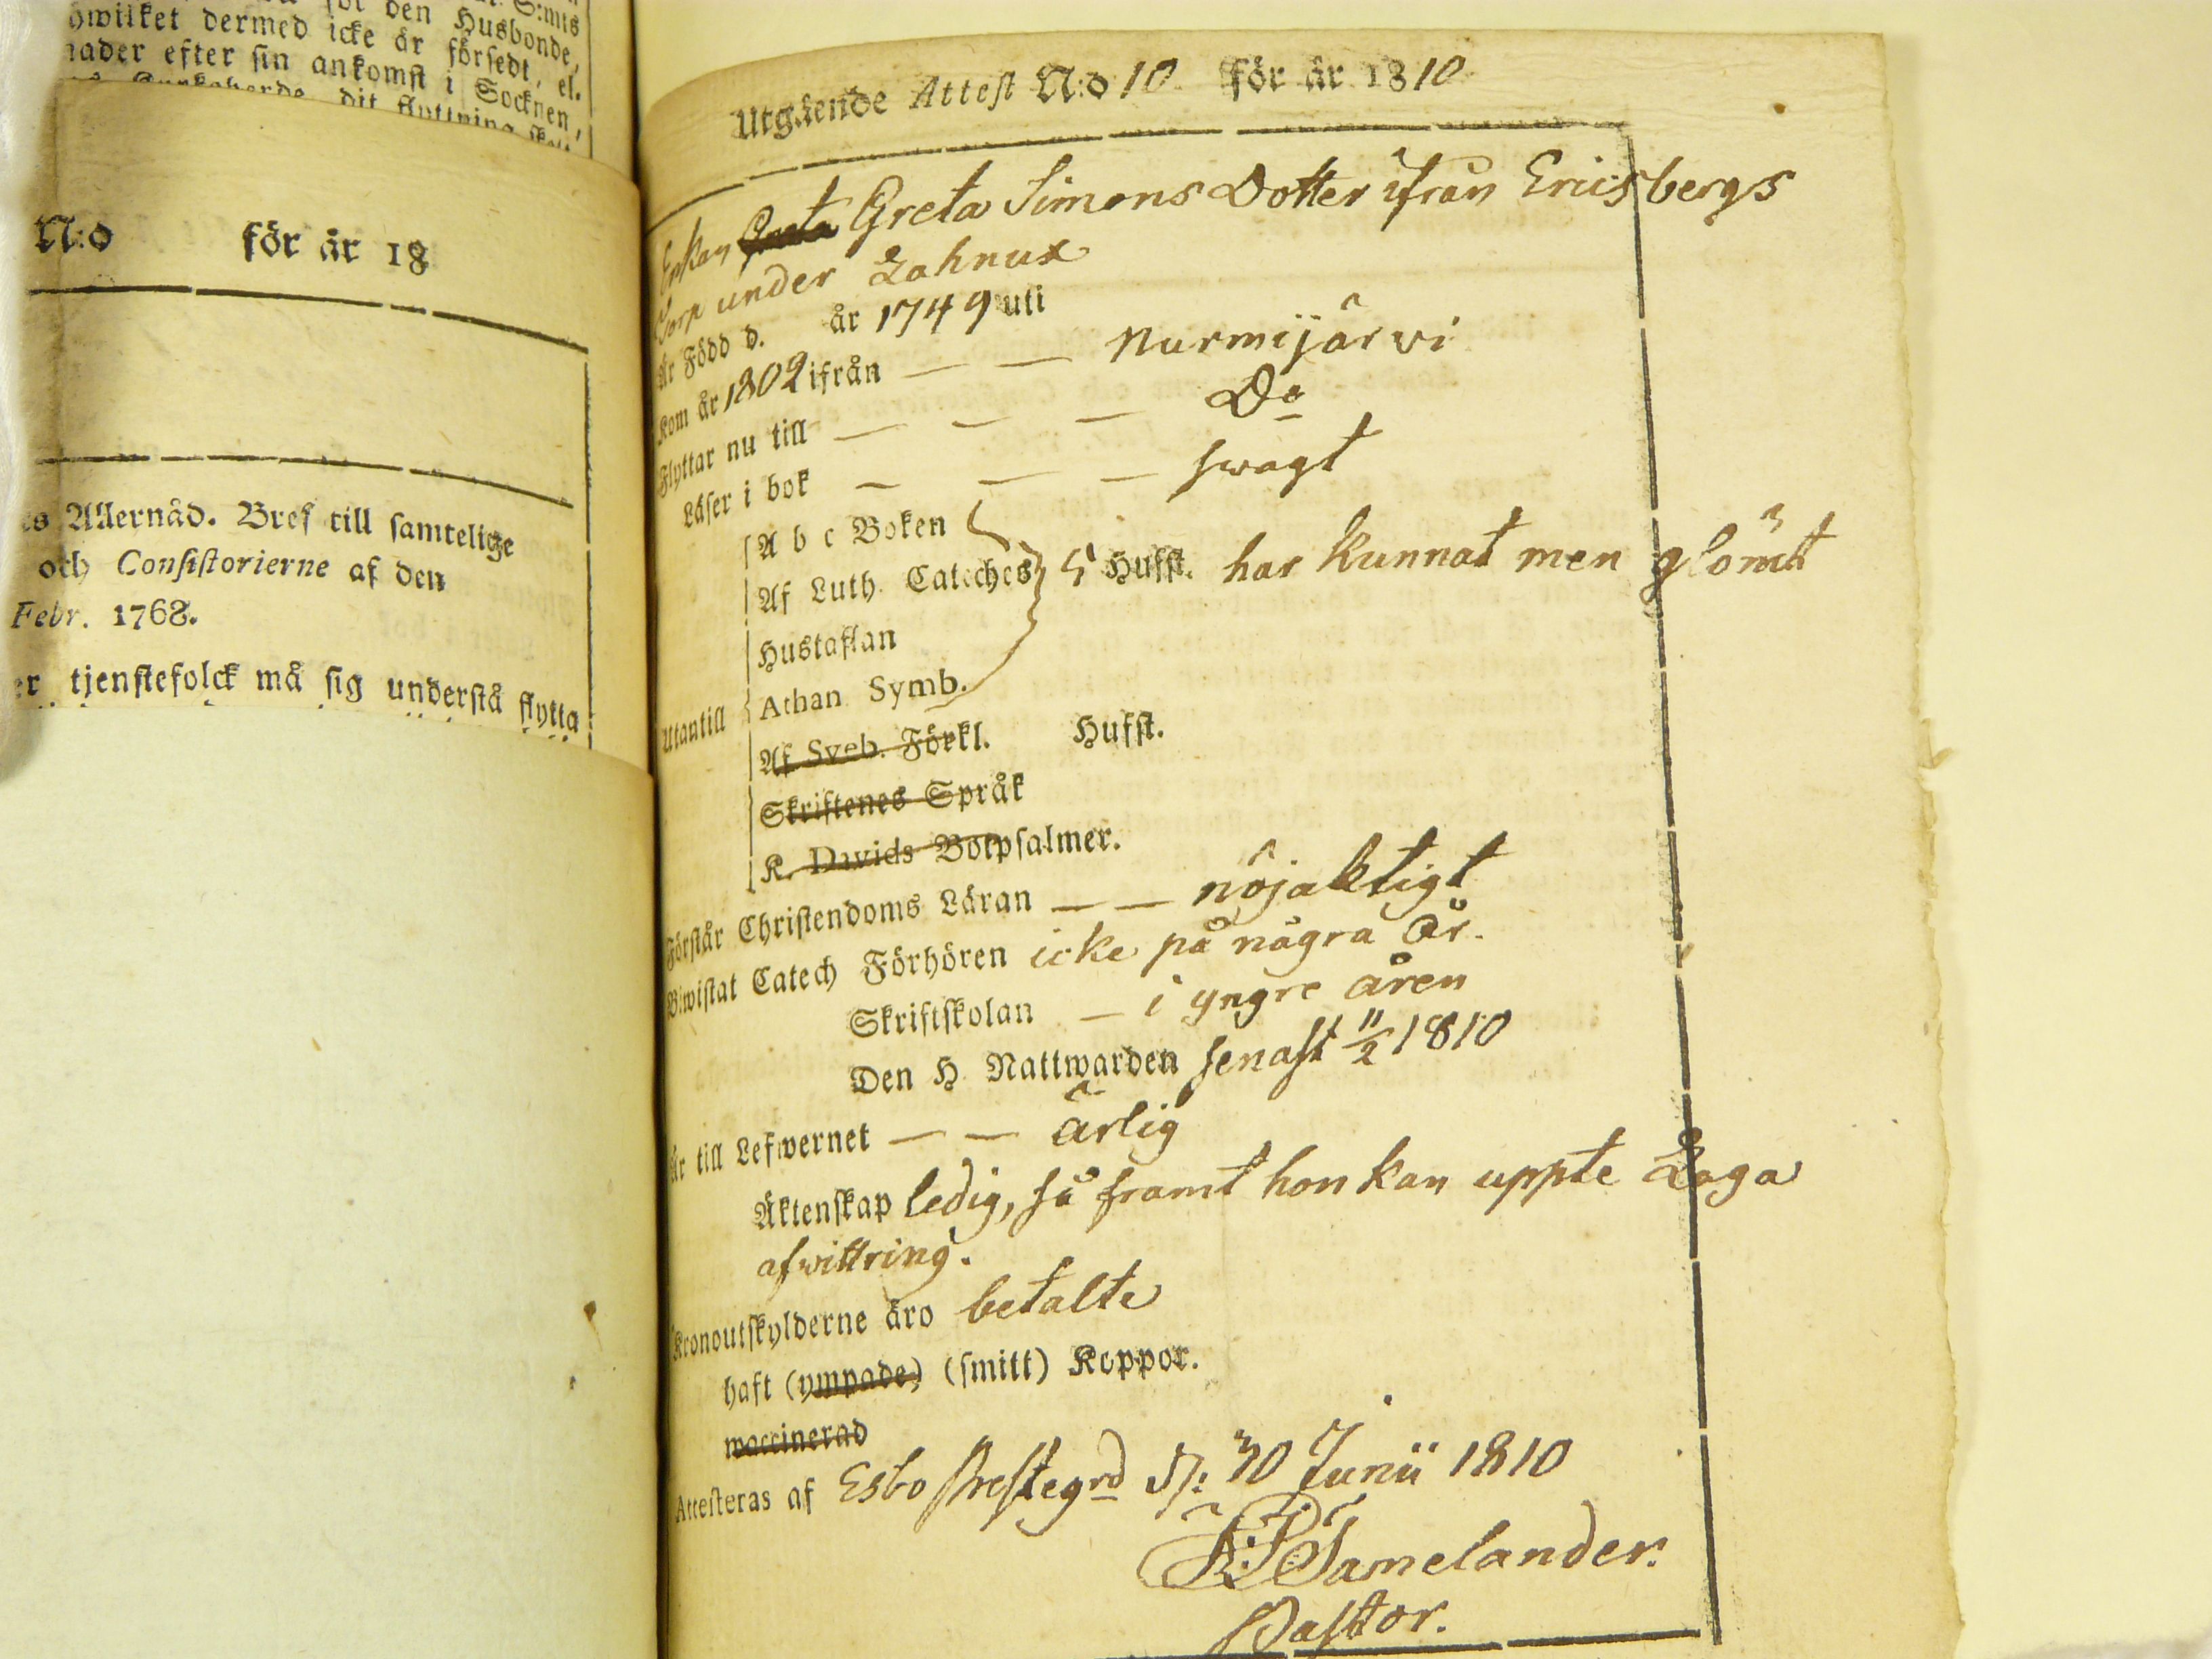 för den Husbonde,
hwilket dermed icke är försedt, el.
nader efter sin ankomst i Socknen,
dit flyttning
N:o för år 18
Allernåd. Bref till samtelige
och Consistorierne af den
Febr. 1768.
tjenstefolck må sig understå flytta
Utgående Attest N:o 10 för år 1810
Enkan Greta Greta Simons Dotter ifrån Ericsbergs
Torp under Lahnus
Är Född d. år 1749 uti
Kom år 1802 ifrån — — Nurmijärvi
Flyttar nu till — — — Do
Läser i bok — — — swagt
A b c Boken
Af Luth. Cateches 5 Hufst. har kunnat men glömt
Hustaflan
Athan Symb.
Utantill
Af Sveb. Förkl. Hufst.
Skriftenes Språk
K. Davids Botpsalmer.
Förstår Christendoms Läran — — nöjaktigt
Biwistat Catech Förhören icke på några år.
Skriftskolan — i yngre åren
Den H. Nattwarden senast 11/2 1810
Är till Lefwernet — — ärlig
Äktenskap ledig, så framt hon kan uppte Laga
afwittring.
Kronoutskylderne äro betalte
haft (ympade) (smitt) Koppor.
waccinerad
Attesteras af Esbo Prestegrd d: 30 Junii 1810
Tamelander.
Pastor.